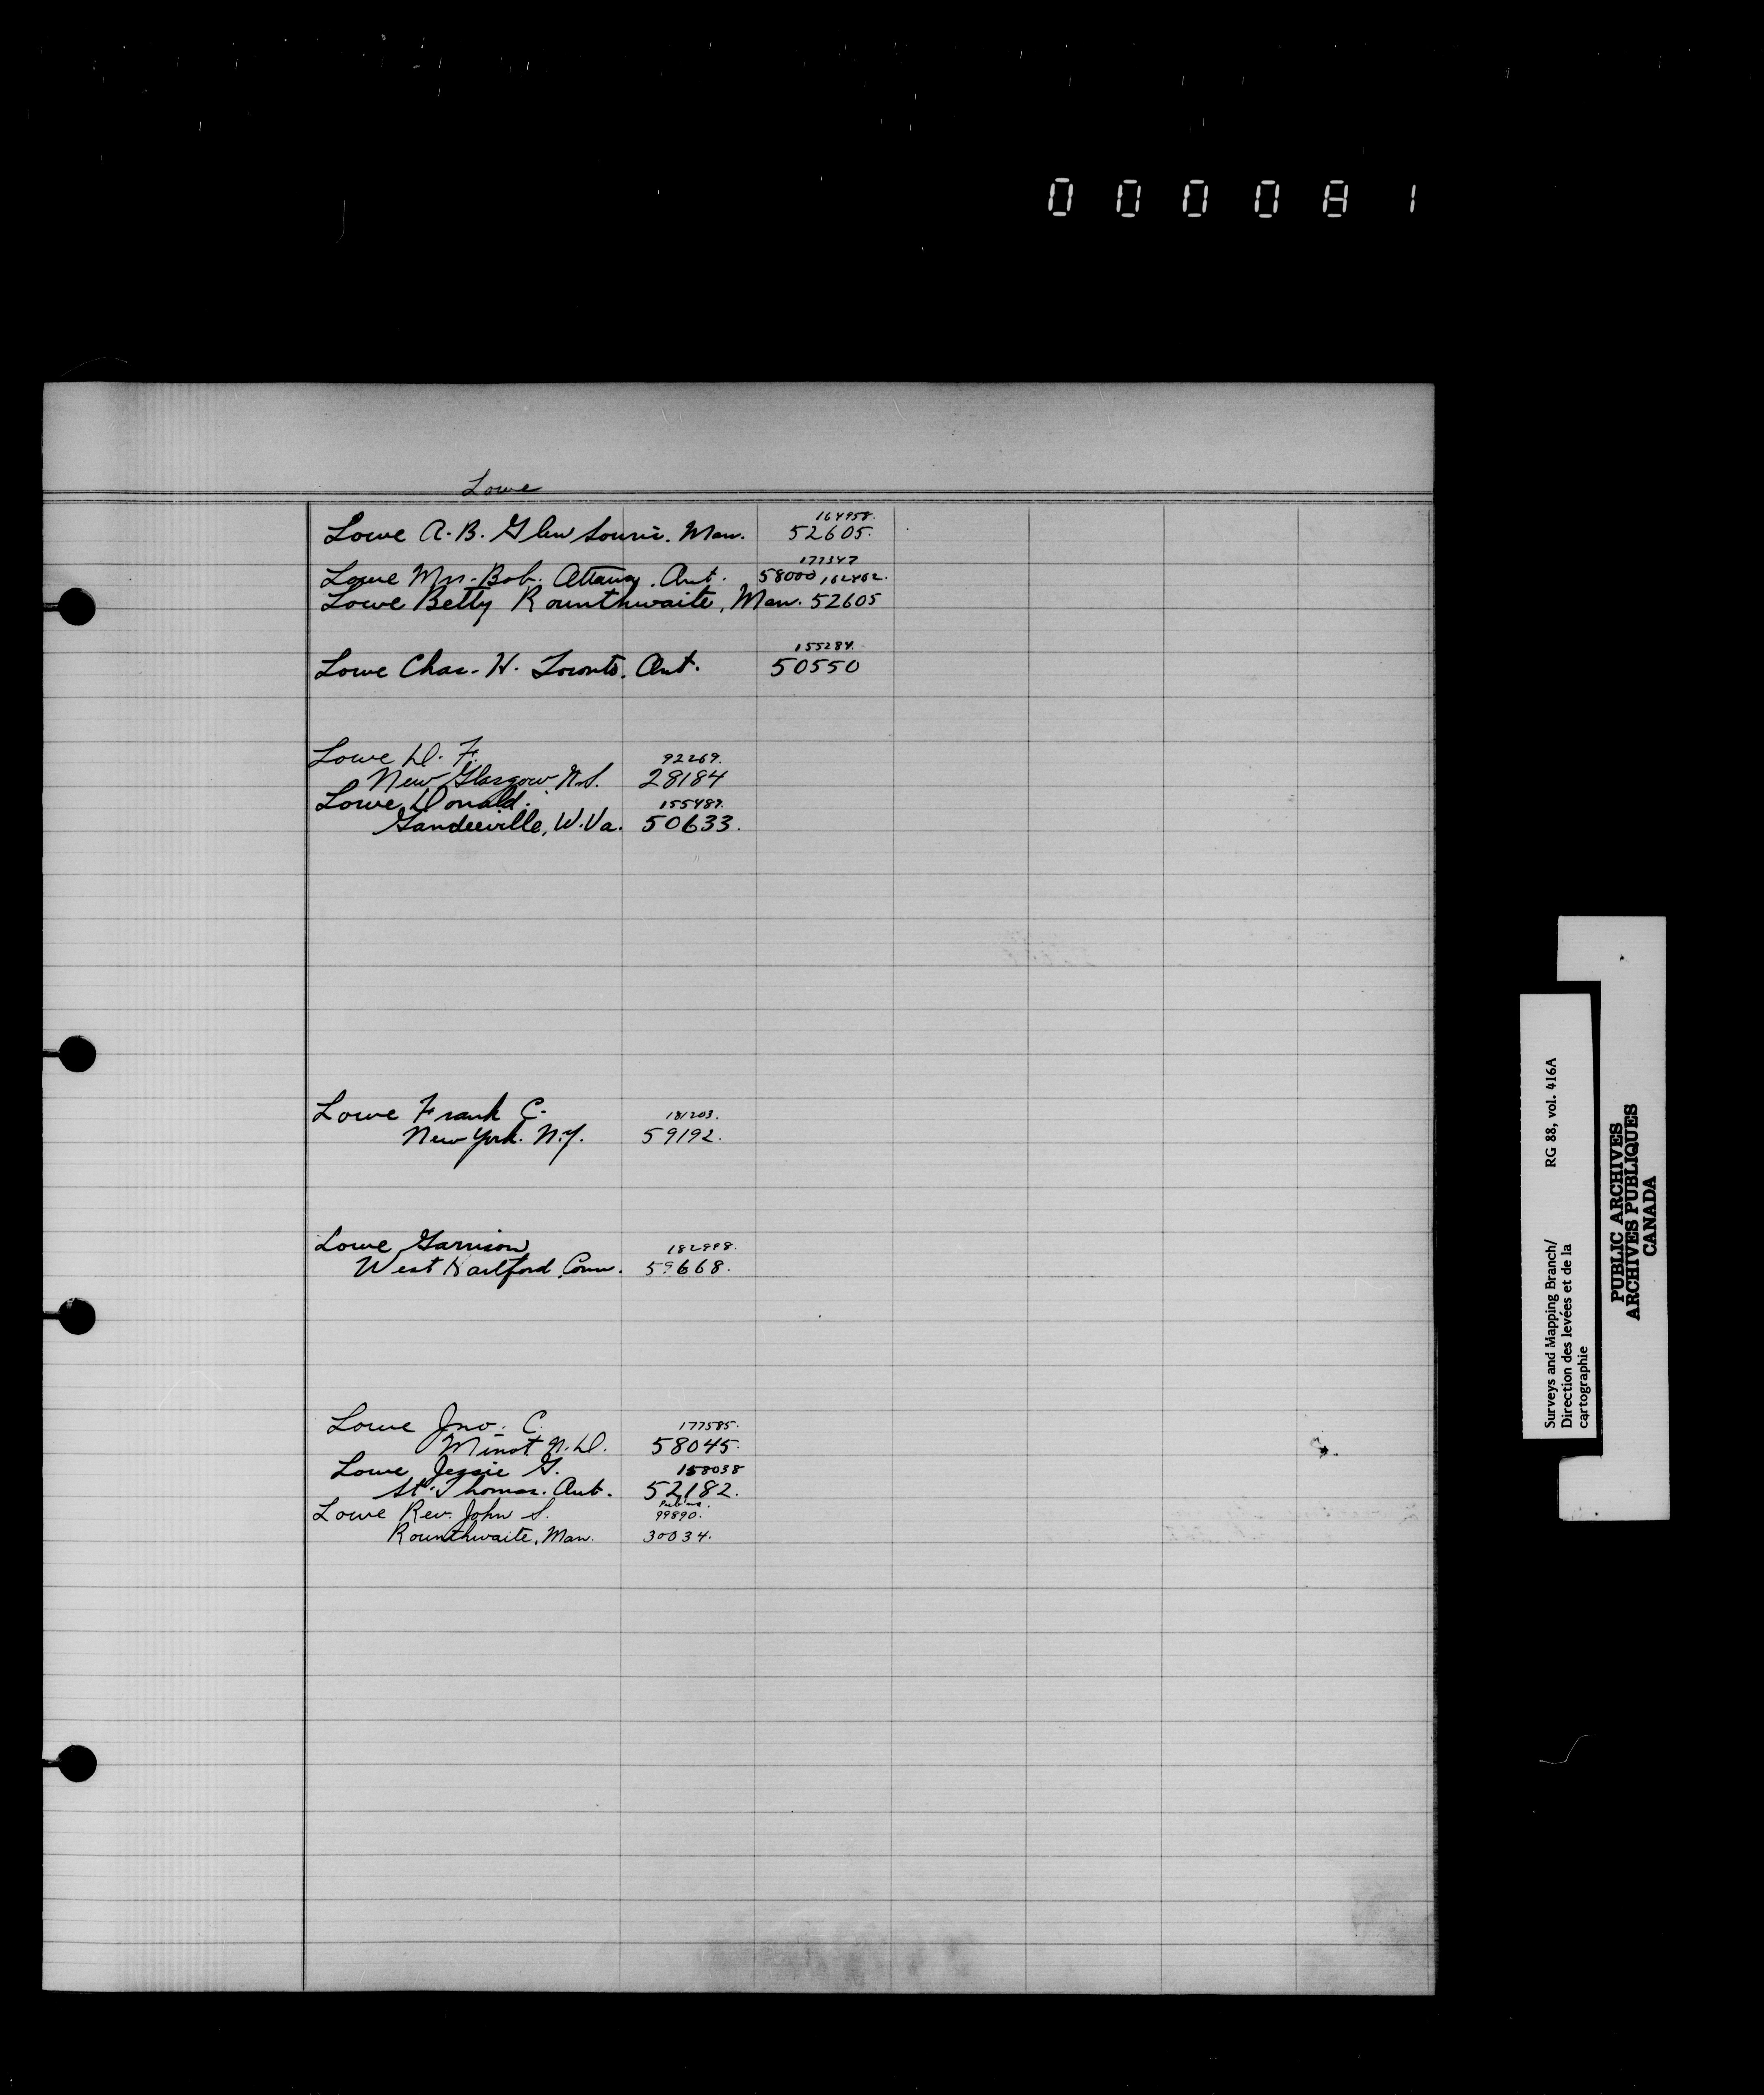 000081
Lowe
164958.
Lowe A. B. Glen Souris. Man. 52605.
177347
Lowe Mrs. Bob. Ottawa. Ont. 58000 162462.
Lowe Betty Rounthwaite, Man. 52605
155284.
Lowe Chas. H. Toronto. Ont. 50550
Lowe D. F. 92269.
New Glasgow N.S. 28184
Lowe Donald. 155489.
Gandeeville, W. Va. 50633.
Lowe Frank C. 181203.
New York. N.Y. 59192.
Lowe Garrison 182998.
West Hartford Conn. 59668.
Lowe Jno. C. 177585.
Minot N.D. 58045.
Lowe Jessie G. 158038
St. Thomas. Ont. 52182.
Lowe Rev. John S. 99890.
Rounthwaite, Man. 30034.
Surveys and Mapping Branch/ RG 88, vol. 416A
Direction des levées et de la
cartographie
PUBLIC ARCHIVES
ARCHIVES PUBLIQUES
CANADA